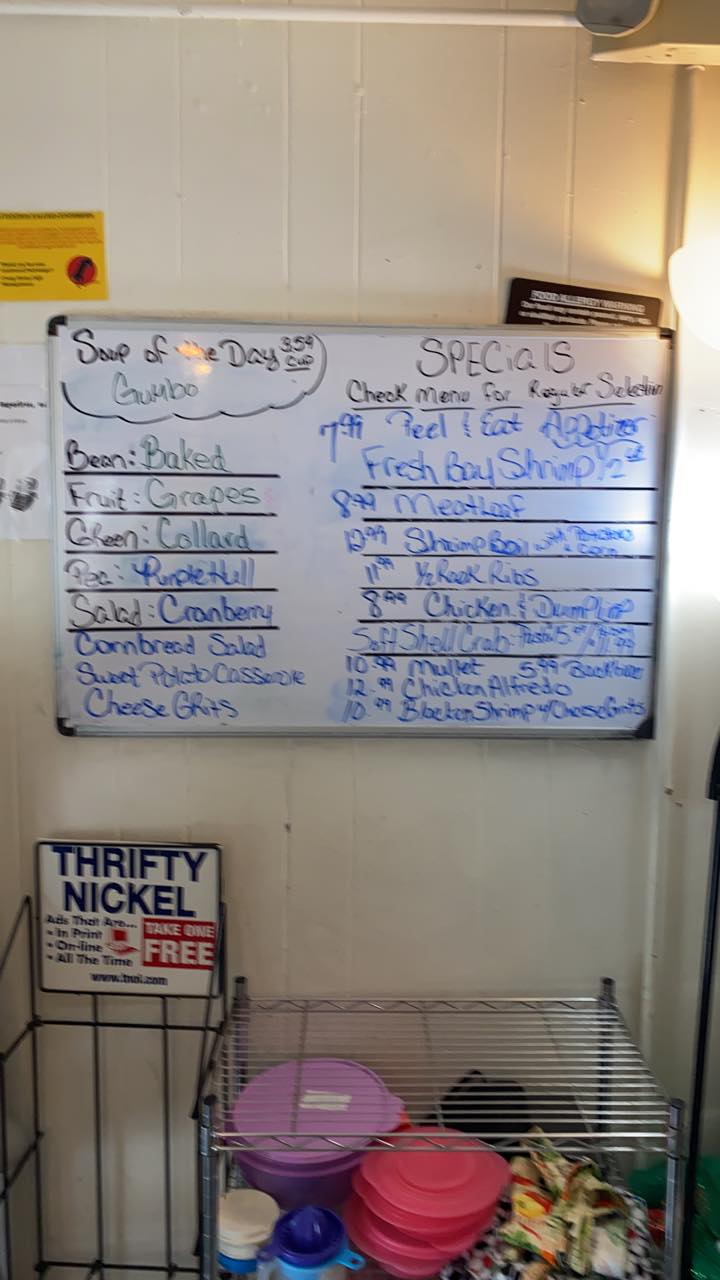 FOOD ALLERGY WARNING
Soup of the Day 3.59 cup
Gumbo
Bean: Baked
Fruit: Grapes
Green: Collard
Pea: Purple Hull
Salad: Cranberry
Cornbread Salad
Sweet Potato Casserole
Cheese Grits
SPECiaLS
Check Menu For Regular Selection
7.99 Peel & Eat Appetizer
Fresh Bay Shrimp 1/2
8.99 Meatloaf
12.99 Shrimp Boil with Potatoes & Corn
11.99 1/2 Rack Ribs
8.99 Chicken & Dumpling
Soft Shell Crab
10.99 Mullet 5.99 Backbone
12.99 Chicken Alfredo
10.99 Blacken Shrimp w/ Cheese Grits
THRIFTY
NICKEL
Ads That Are...
• In Print
• On-line
• All The Time
TAKE ONE
FREE
www.tnol.com